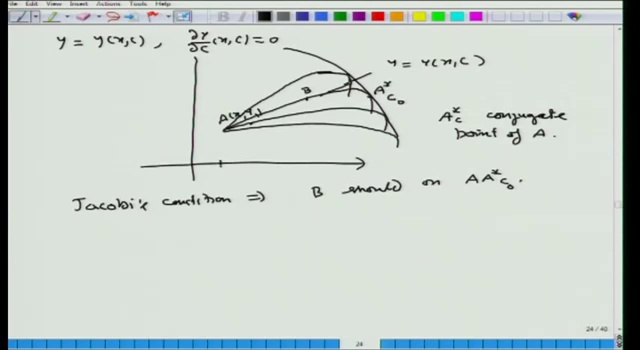 View Insert Actions Tools Help
y = y(x,c), ∂Y/∂c (x,c) = 0
y = Y(x,c)
B
A*c₀
A(x₁,y₁)
A*c conjugate
point of A.
Jacobi's condition ⇒ B should on AA*c₀.
24 / 40
24